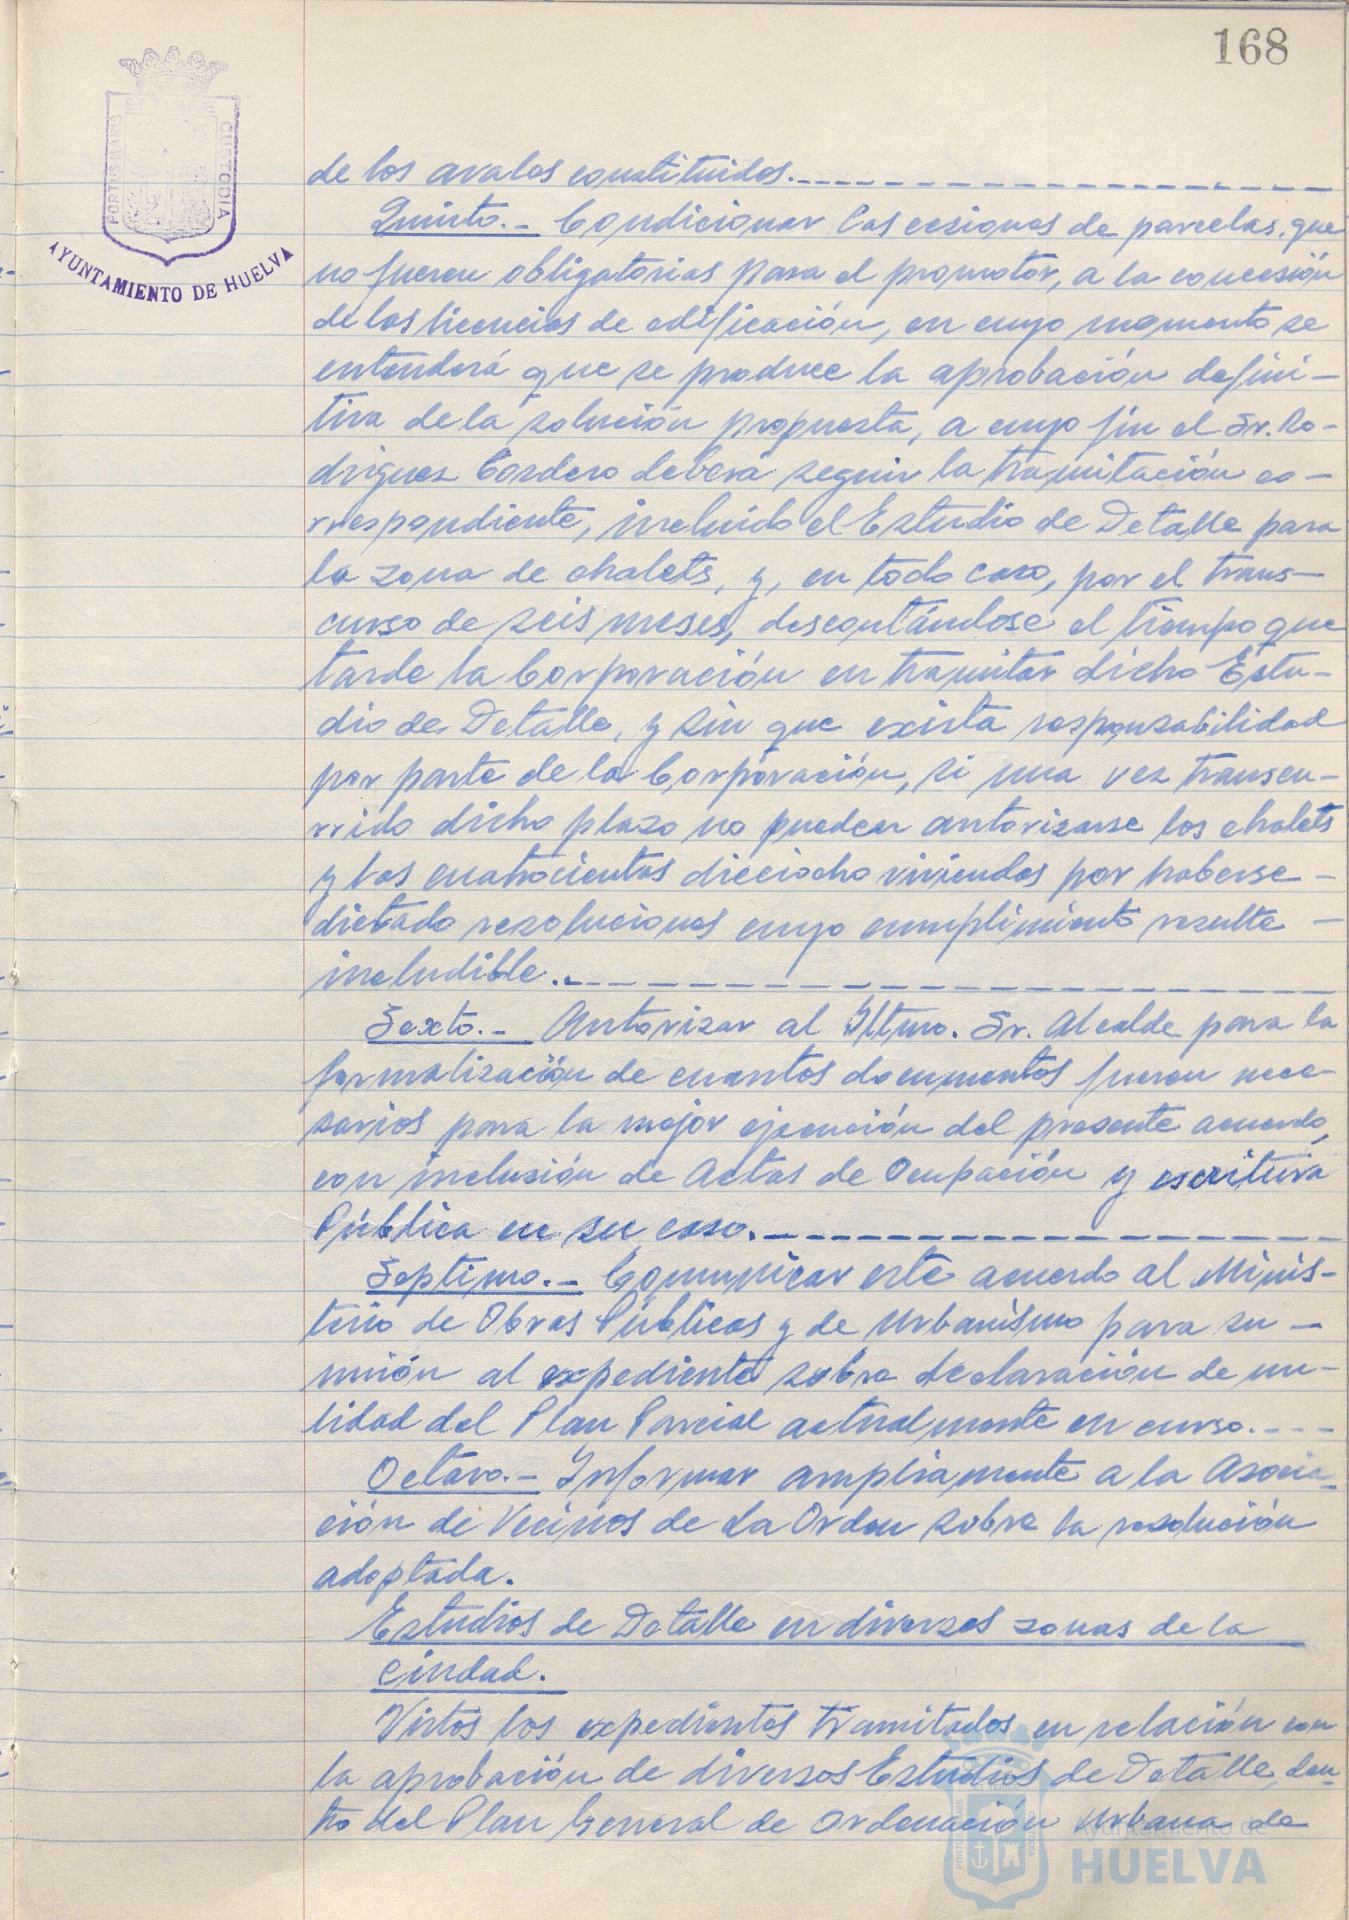 168
PORTUS MARIS
CUSTODIA
AYUNTAMIENTO DE HUELVA
de los avales constituidos.
Quinto.- Condicionar las cesiones de parcelas, que
no fueren obligatorias para el promotor, a la concesión
de las licencias de edificación, en cuyo momento se
entenderá que se produce la aprobación defini-
tiva de la solución propuesta, a cuyo fin el Sr. Ro-
driguez Cordero deberá seguir la tramitación co-
rrespondiente, incluido el Estudio de Detalle para
la zona de chalets, y, en todo caso, por el trans-
curso de seis meses, descontándose el tiempo que
tarde la Corporación en tramitar dicho Estu-
dio de Detalle, y sin que exista responsabilidad
por parte de la Corporación, si una vez transcu-
rrido dicho plazo no pueden autorizarse los chalets
y las cuatrocientas dieciocho viviendas por haberse
dictado resoluciones cuyo cumplimiento resulte
ineludible.
Sexto.- Autorizar al Iltmo. Sr. Alcalde para la
formalización de cuantos documentos fueren nece-
sarios para la mejor ejecución del presente acuerdo,
con inclusión de Actas de Ocupación y escritura
Pública en su caso.
Septimo.- Comunicar este acuerdo al Minis-
terio de Obras Públicas y de Urbanismo para su
unión al expediente sobre declaración de nu-
lidad del Plan Parcial actualmente en curso.
Octavo.- Informar ampliamente a la Asocia-
ción de Vecinos de La Orden sobre la resolución
adoptada.
Estudios de Detalle en diversas zonas de la
Ciudad.
Vistos los expedientes tramitados en relación con
la aprobación de diversos Estudios de Detalle, den-
tro del Plan General de Ordenación Urbana de
Ayuntamiento de
HUELVA